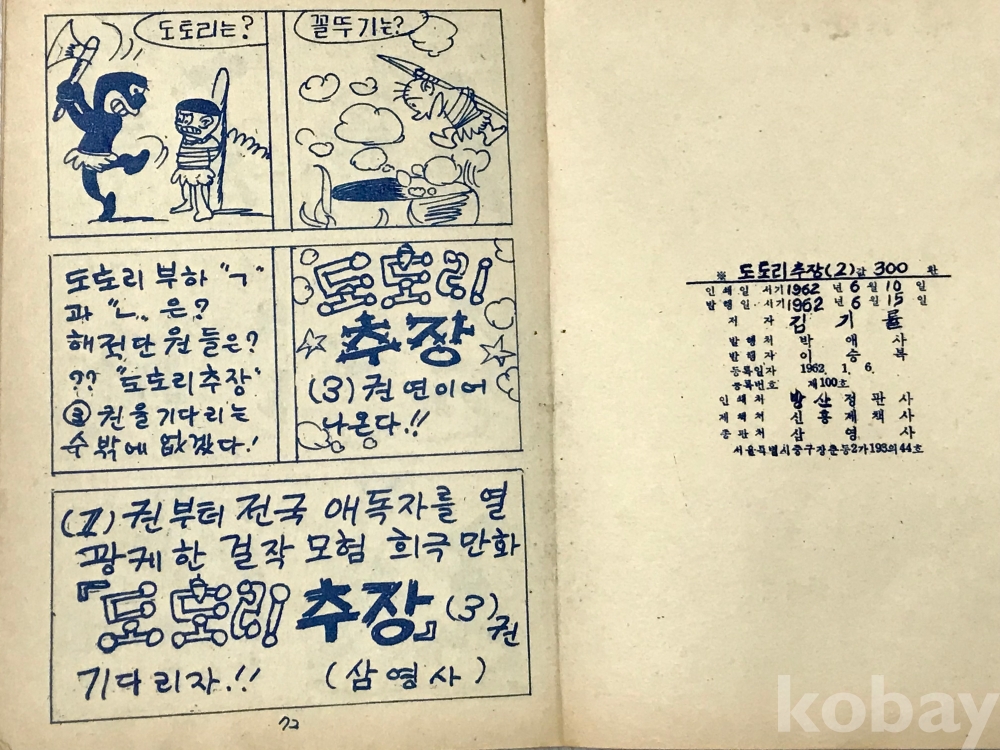 도토리는?
꼴뚜기는?
도토리 부하 "ㄱ"
과 "ㄴ" 은?
해적단원들은?
?? "도토리추장"
③권을기다리는
수밖에 없겠다!
도토리!
추장
(3)권 연이어
나온다.!!
(1)권부터 전국 애독자를 열
광케한 걸작 모험 희극만화
『도토리! 추장』(3)권
기다리자.!!
(삼영사)
72
※ 도토리추장(2) 값 300 환
인쇄일 서기 1962 년 6 월 10 일
발행일 서기 1962 년 6 월 15 일
저 자 김 기 률
발행처 박 애 사
발행자 이 승 복
등록일자 1962. 1. 6.
등록번호 제100호
인쇄처 방산정판사
제책처 신흥제책사
총판처 삼 영 사
서울특별시중구장춘동2가193의44호
kobay